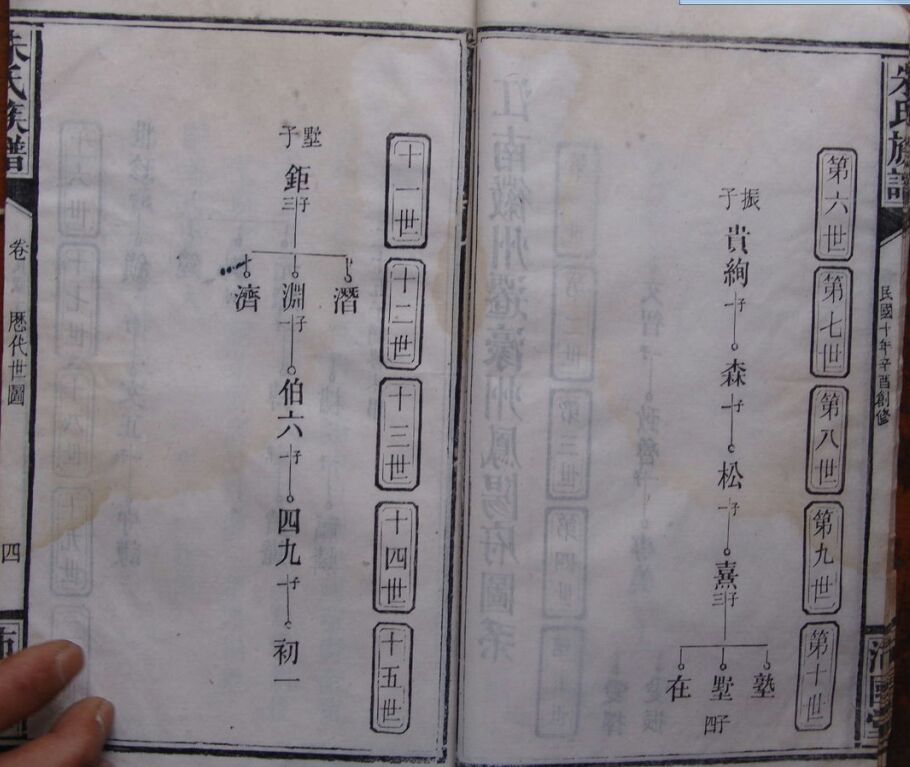 民國十年辛酉創修
第六世
第七世
第八世
第九世
第十世
振子
貴絢
一子
森
一子
松
一子
熹
三子
塾
墅
四子
在
十一世
十二世
十三世
十四世
十五世
墅子
鉅
三子
潛
淵
一子
濟
伯六
一子
四九
一子
初一
朱氏族譜
卷
歷代世圖
四